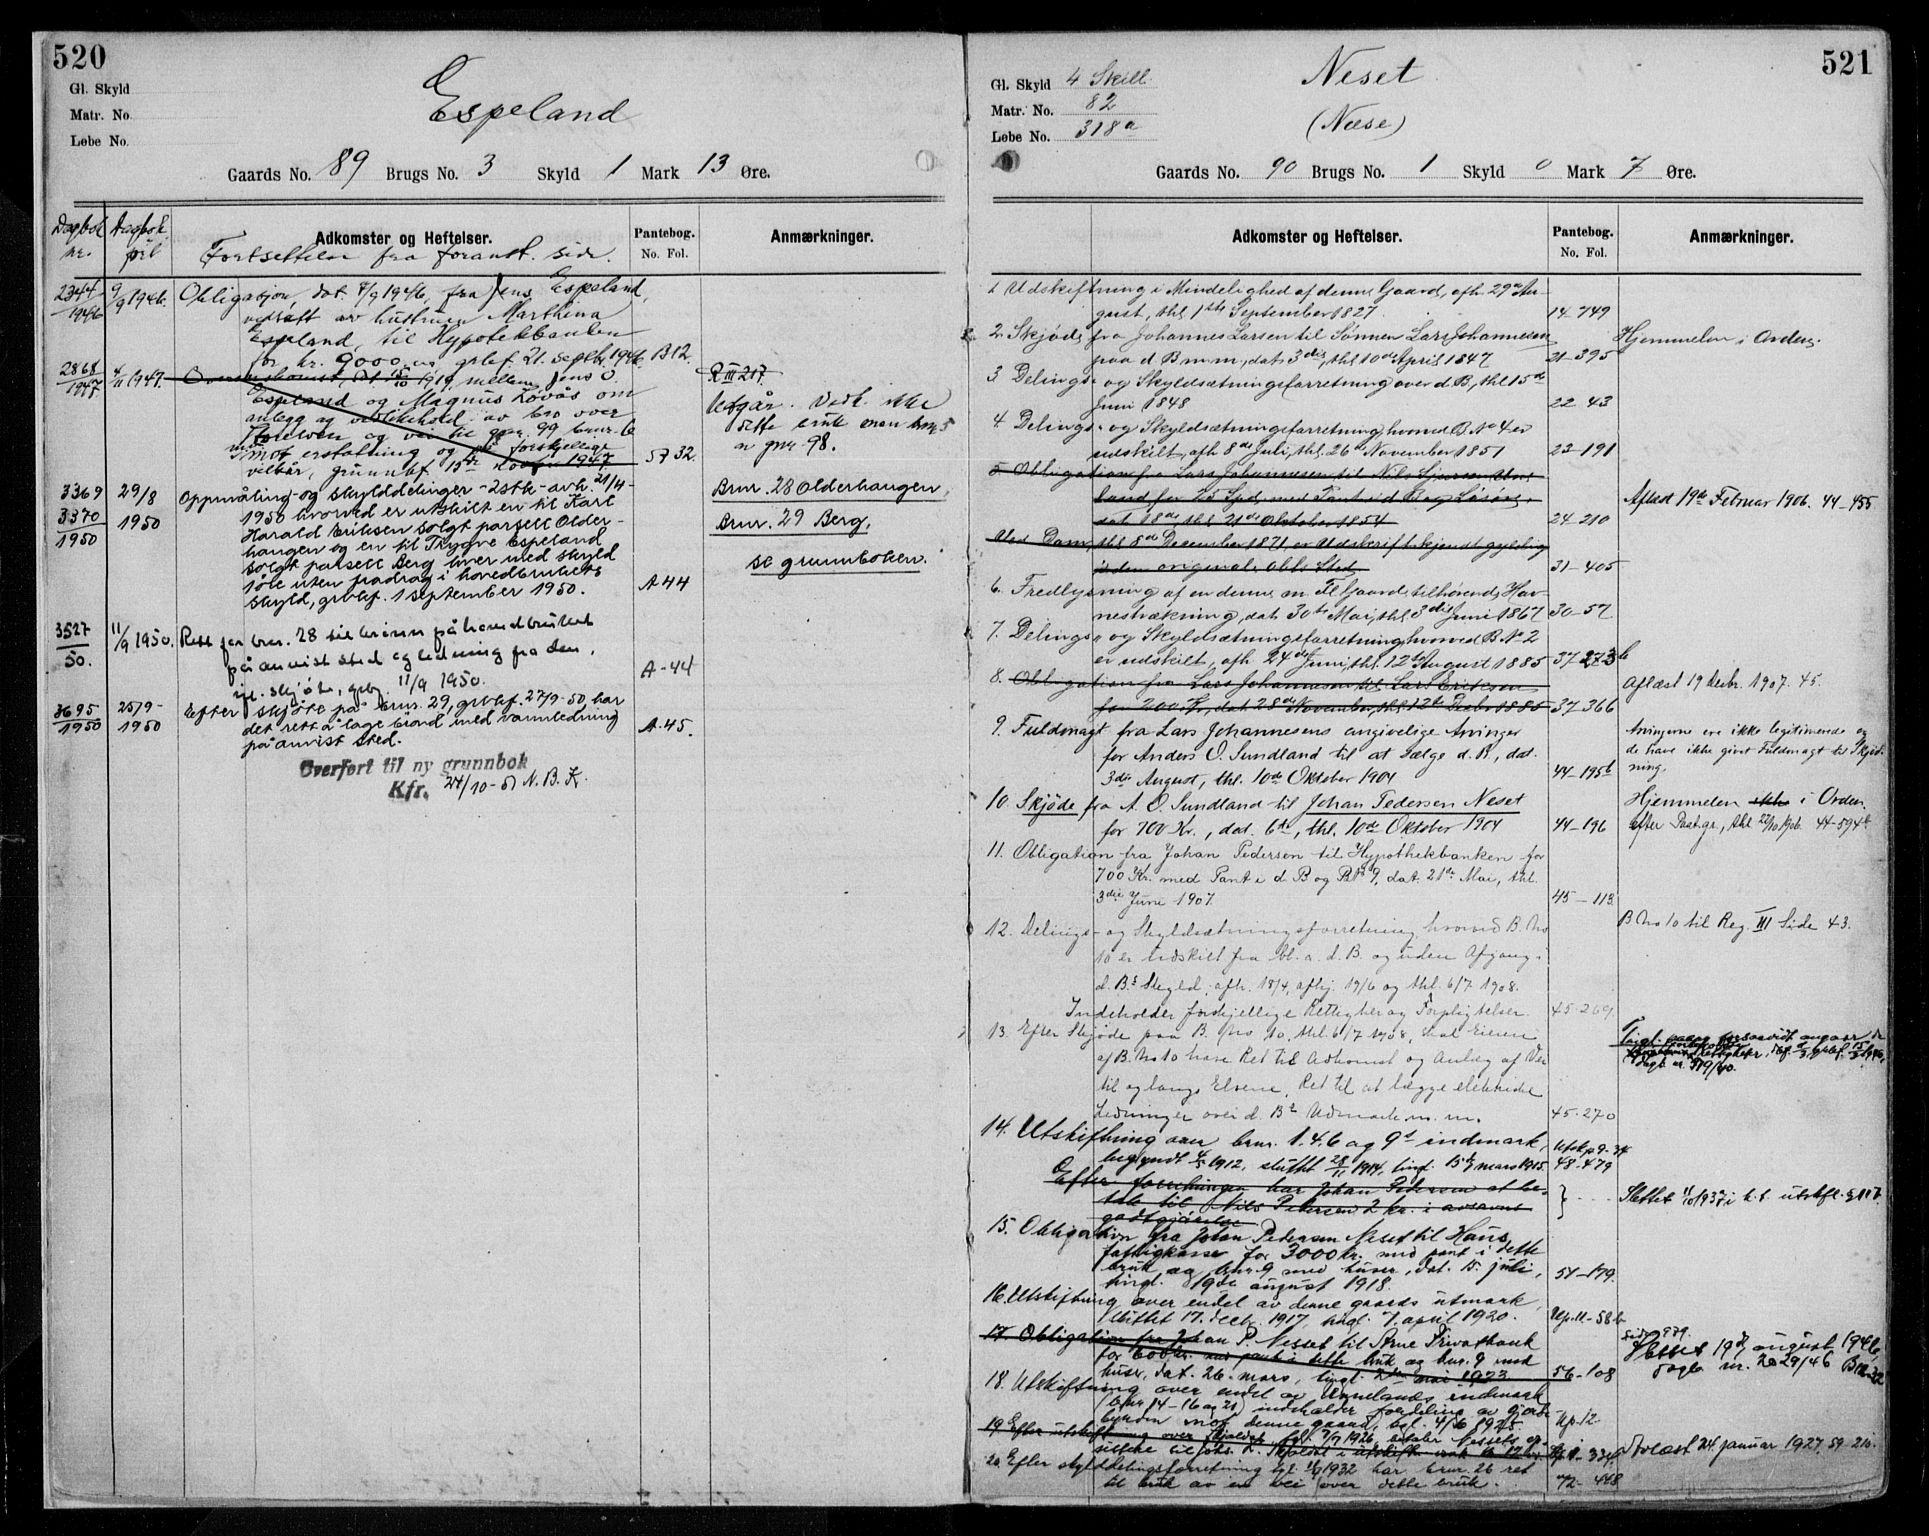 520
Gl. Skyld
Matr. No.
Løbe No.
Espeland
Gaards No. 89 Brugs No. 3 Skyld 1 Mark 13 Øre.
Dagbok nr.
Dagbok ført
Adkomster og Heftelser.
Fortsettelse fra foranst. side.
Pantebog.
No. Fol.
Anmærkninger.
2344/1946 9/9 1946. Obligasjon, dat. 7/9 1946, fra Jens Espeland,
vedtatt av hustruen Marthina
Espeland, til Hypotekbanken
for kr. 9000 grbf. 21. septbr. 1946. B12.
2868/1947 4/11 1947. Overenskomst, dt. 15/10 1919, mellem Jens O.
Espeland og Magnus Lovås om
anlegg og vedlikehold av bro over
og vei til gnr. 99 brnr. 6
mot erstatning og på forskjellige
vilkår, grunnbf. 15de novbr 1947. 57 32.
R III 217.
Utgår. Vedk. ikke
dette bruk men brnr 5
av gnr 98.
3369 3370/1950 29/8 1950 Oppmåling- og skylddelinger - 2 stk - avh. 21/4 -
1950 hvorved er utskilt en til Karl
Harald Eriksen solgt parsell Older-
haugen og en til Trygve Espeland
solgt parsell Berg hver med skyld
1 øre uten fradrag i hovedbrukets
skyld, grbf. 1 september 1950. A 44
Brnr. 28 Olderhaugen,
Brnr. 29 Berg,
se grunnboken.
3527/50. 11/9 1950. Rett for bnr. 28 til brønn på hovedbruket
på anvist sted og ledning fra den,
ifl. skjøte, grbf. 11/9 1950. A-44
3695/1950 25/9 - 1950 Efter skjøte på brnr. 29, grbf. 27/9-50, har
det rett å lage brønd med vannledning
på anvist sted. A-45.
Overført til ny grunnbok
Kfr. 24/10-51 N. B. K.
521
Gl. Skyld 4 Skill.
Matr. No. 82
Løbe No. 318a
Neset
(Næse)
Gaards No. 90 Brugs No. 1 Skyld 0 Mark 7 Øre.
Adkomster og Heftelser.
Pantebog.
No. Fol.
Anmærkninger.
1 Udskiftning i Mindelighed af denne Gaard, afh. 29de Au-
gust, thl. 1ste September 1827 14-749
2. Skjøde fra Johannes Larsen til Sønnen Lars Johannesen
paa d B m.m., dat. 3die, thl. 10de April 1847 21-395
Hjemmelen i Orden.
3 Delings- og Skyldsætningsforretning over d B, thl 15de
Juni 1848 22-43
4. Delings- og Skyldsætningsforretning hvorved B No 4 er
udskilt, afh 8de Juli, thl. 26de November 1851 23-191
5 Obligation fra Lars Johannesen til Nils
land for 25 Spd. med Pant i d B og Løsøre,
dat 18de, thl. 21de Oktober 1854 24-210
Aflæst 19de Februar 1906. 44-455
Ved Dom, thl 8de December 1871, er Udskrift kjendt gyldig
i den originale Obls Sted 31-405
6. Fredlysning af en denne m Fl Gaarde tilhørende Hav-
nestrækning, dat 30te Mai, thl 3die Juni 1867 30-57
7. Delings- og Skyldsætningsforretning hvorved B No 2
er udskilt, afh 24de Juni, thl. 12te August 1885 37-273b
8. Obligation fra Lars Johannesen til Lars Eriksen
for 200 Kr, dat 28de November, thl 12te Decbr 1885 37-366
Aflæst 19 decbr. 1907. 45.
9. Fuldmagt fra Lars Johannesens angivelige Arvinger
for Anders O. Sundland til at sælge d. B., dat.
3die August, thl. 10de Oktober 1904 44-195b
Arvingerne ere ikke legitimerede og
de have ikke givet Fuldmagt til Skjød-
ning.
10. Skjøde fra A. O. Sundland til Johan Pedersen Neset
for 700 Kr., dat. 6te, thl. 10de Oktober 1904 44-196
Hjemmelen ikke i Orden.
efter Pantgr., thl 44-594b
11. Obligation fra Johan Pedersen til Hypothekbanken for
700 Kr. med Pant i d B og B No 9, dat. 21de Mai, thl.
3die Juni 1907. 45-113.
12. Delings- og Skyldsætningsforretning hvorved B. No
10 er udskilt fra bl. a. d. B. og uden Afgang i
d. Bs Skyld, afh. 18/4, afhj. 19/6 og thl. 6/7 1908.
Indeholder forskjellige Rettigheder og Forpligtelser. 45-269.
B No 10 til Reg. III Side 43.
13. Efter Skjøde paa B. No 10, thl. 6/7 1908, skal Eieren
af B. No 10 have Ret til Adkomst og Anlæg af Vei
til og langs Elvene, Ret til at lægge elektriske
Ledninger over d. Bs Udmark m. m. 45-270
14. Utskiftning over brnr. 1. 4. 6 og 9s indmark,
begyndt 4/5 1912, sluttet 28/11 1914, tingl. 15de mars 1915. 48-479
Efter forretningen har Johan Pedersen at be-
tale til Nils Petersen 2 kr. i avsavns
godtgjørelse
Slettet 11/10 1937 i h.t. utskfl. § 117.
15. Obligation fra Johan Pedersen Neset til Haus
fattigkasse for 3000 kr. med pant i dette
bruk og bnr. 9 med huser, dat. 15. juli,
tingl. 19de august 1918. 51-179.
16. Utskiftning over endel av denne gaards utmark,
sluttet 17. decbr. 1917, tingl. 7. april 1920. Up. 11-58b
17. Obligation fra Johan P. Nesset til Arne Privatbank
for 600 kr. med pant i dette bruk og bnr. 9 med
huser, dat. 26. mars, tingl. 2den mai 1923 56-108
Slettet 19de august 1946
dagb nr. 2029/46
18. Utskiftning over endel av Unnelands indmark
(bnr 14-16 og 21) indeholder fordeling av gjerde-
byrden mot denne gaard, tgl. 4/6 1925 Up. 12
19 Efter utskiftning over tgl. 7/7 1926, betaler Nessets op-
20. Efter skylddelingsforretning tgl 1932 har brnr. 26 ret
til bruk av en vei over dette bruk. 448
Avlæst 24 januar 1927 59-210.